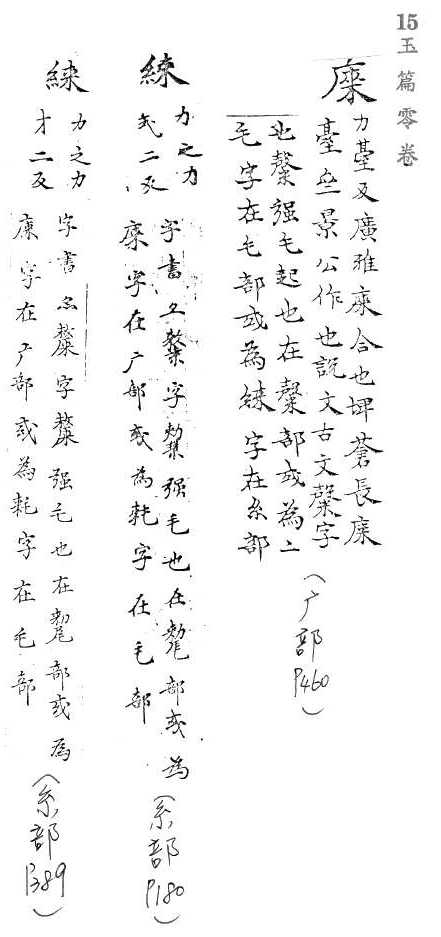 15玉篇零卷
庲
力臺反廣雅庲合也埤蒼長庲
臺亝景公作也說文古文斄字
也斄强毛起也在斄部或為〻
毛字在毛部或為䋱字在糸部
(广部P460)
䋱
力之力
二反
字書亦斄字斄强毛也在斄部或為
庲字在广部或為耗字在毛部
(糸部P180)
䋱
力之力
才二反
字書亦斄字斄强毛也在斄部或爲
庲字在广部或為耗字在毛部
(糸部P389)